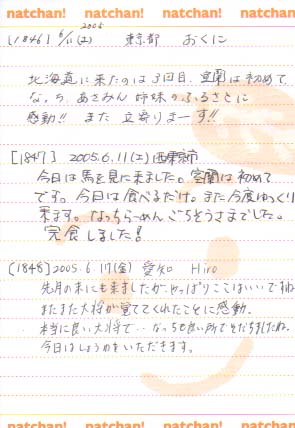 natchan! natchan! natchan! natchan!
[1846] 6/11(土) 2005 東京都 おくに
北海道に来たのは3回目、室蘭は初めて
なっち、あさみん姉妹のふるさとに
感動!! また立寄りまーす!!
[1847] 2005.6.11(土) 西東京市
今日は馬を見に来ました。室蘭は初めて
です。今日は食べるだけ。また今度ゆっくり
来ます。なっちらーめんごちそうさまでした。
完食しました!
[1848] 2005.6.17(金) 愛知 Hiro
先月の末にも来ましたが、やっぱりここはいいですね
またまた大将が覚ててくれたことに感動。
本当に良い大将で‥なっちも良い所でそだちましたね。
今日はしょうゆをいただきます。
natchan! natchan! natchan! natchan!